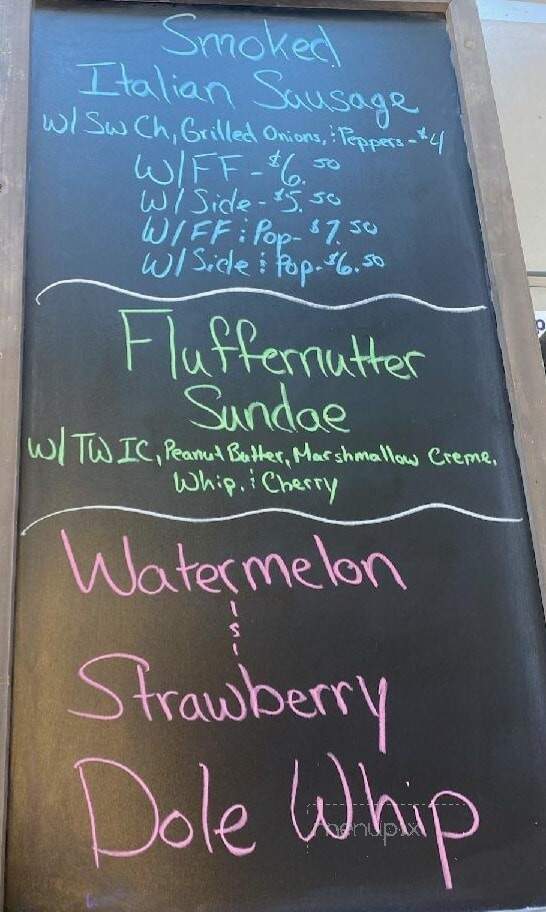 Smoked
Italian Sausage
w/ Sw Ch, Grilled Onions, & Peppers - $4
W/ FF - $6.50
W/ Side - $5.50
W/ FF & Pop - $7.50
W/ Side & Pop - $6.50
Fluffernutter
Sundae
w/ TW IC, Peanut Butter, Marshmallow Creme,
Whip, & Cherry
Watermelon
&
Strawberry
Dole Whip
menupix